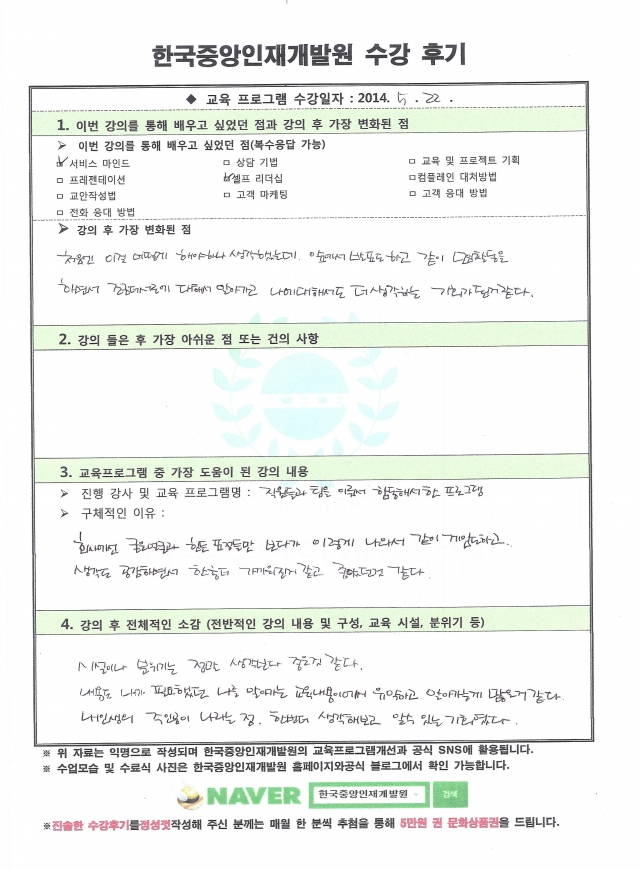 한국중앙인재개발원 수강 후기
◆ 교육 프로그램 수강일자 : 2014. 5 . 22 .
1. 이번 강의를 통해 배우고 싶었던 점과 강의 후 가장 변화된 점
➤ 이번 강의를 통해 배우고 싶었던 점(복수응답 가능)
☑ 서비스 마인드 □ 상담 기법 □ 교육 및 프로젝트 기획
□ 프레젠테이션 ☑ 셀프 리더십 □ 컴플레인 대처방법
□ 교안작성법 □ 고객 마케팅 □ 고객 응대 방법
□ 전화 응대 방법
➤ 강의 후 가장 변화된 점
처음엔 이걸 어떻게 해야하나 생각했는데. 앞에서 발표도 하고 같이
하면서 대해서 알아가고 나에대해서도 더 생각하는 기회가 된거 같다.
2. 강의 들은 후 가장 아쉬운 점 또는 건의 사항
3. 교육프로그램 중 가장 도움이 된 강의 내용
➤ 진행 강사 및 교육 프로그램명 : 직원들과 팀을 이뤄서 함동해서 한 프로그램
➤ 구체적인 이유 :
회사에선 힘든 표정들만 보다가 이렇게 나와서 같이 게임도하고.
생각도 공감하면서 한층더 가까워진거 같고 좋았던것 같다.
4. 강의 후 전체적인 소감 (전반적인 강의 내용 및 구성, 교육 시설, 분위기 등)
시설이나 분위기는 정말 생각보다 좋은것 같다.
내용도 내가 필요했던 나를 알아가는 교육내용이여서 유익하고 알아가는게 많은거 같다.
내인생의 주인공이 나라는 점. 한번더 생각해보고 알수 있는 기회였다.
※ 위 자료는 익명으로 작성되며 한국중앙인재개발원의 교육프로그램개선과 공식 SNS에 활용됩니다.
※ 수업모습 및 수료식 사진은 한국중앙인재개발원 홈페이지와공식 블로그에서 확인 가능합니다.
NAVER 한국중앙인재개발원 검색
※진솔한 수강후기를정성껏작성해 주신 분께는 매월 한 분씩 추첨을 통해 5만원 권 문화상품권을 드립니다.